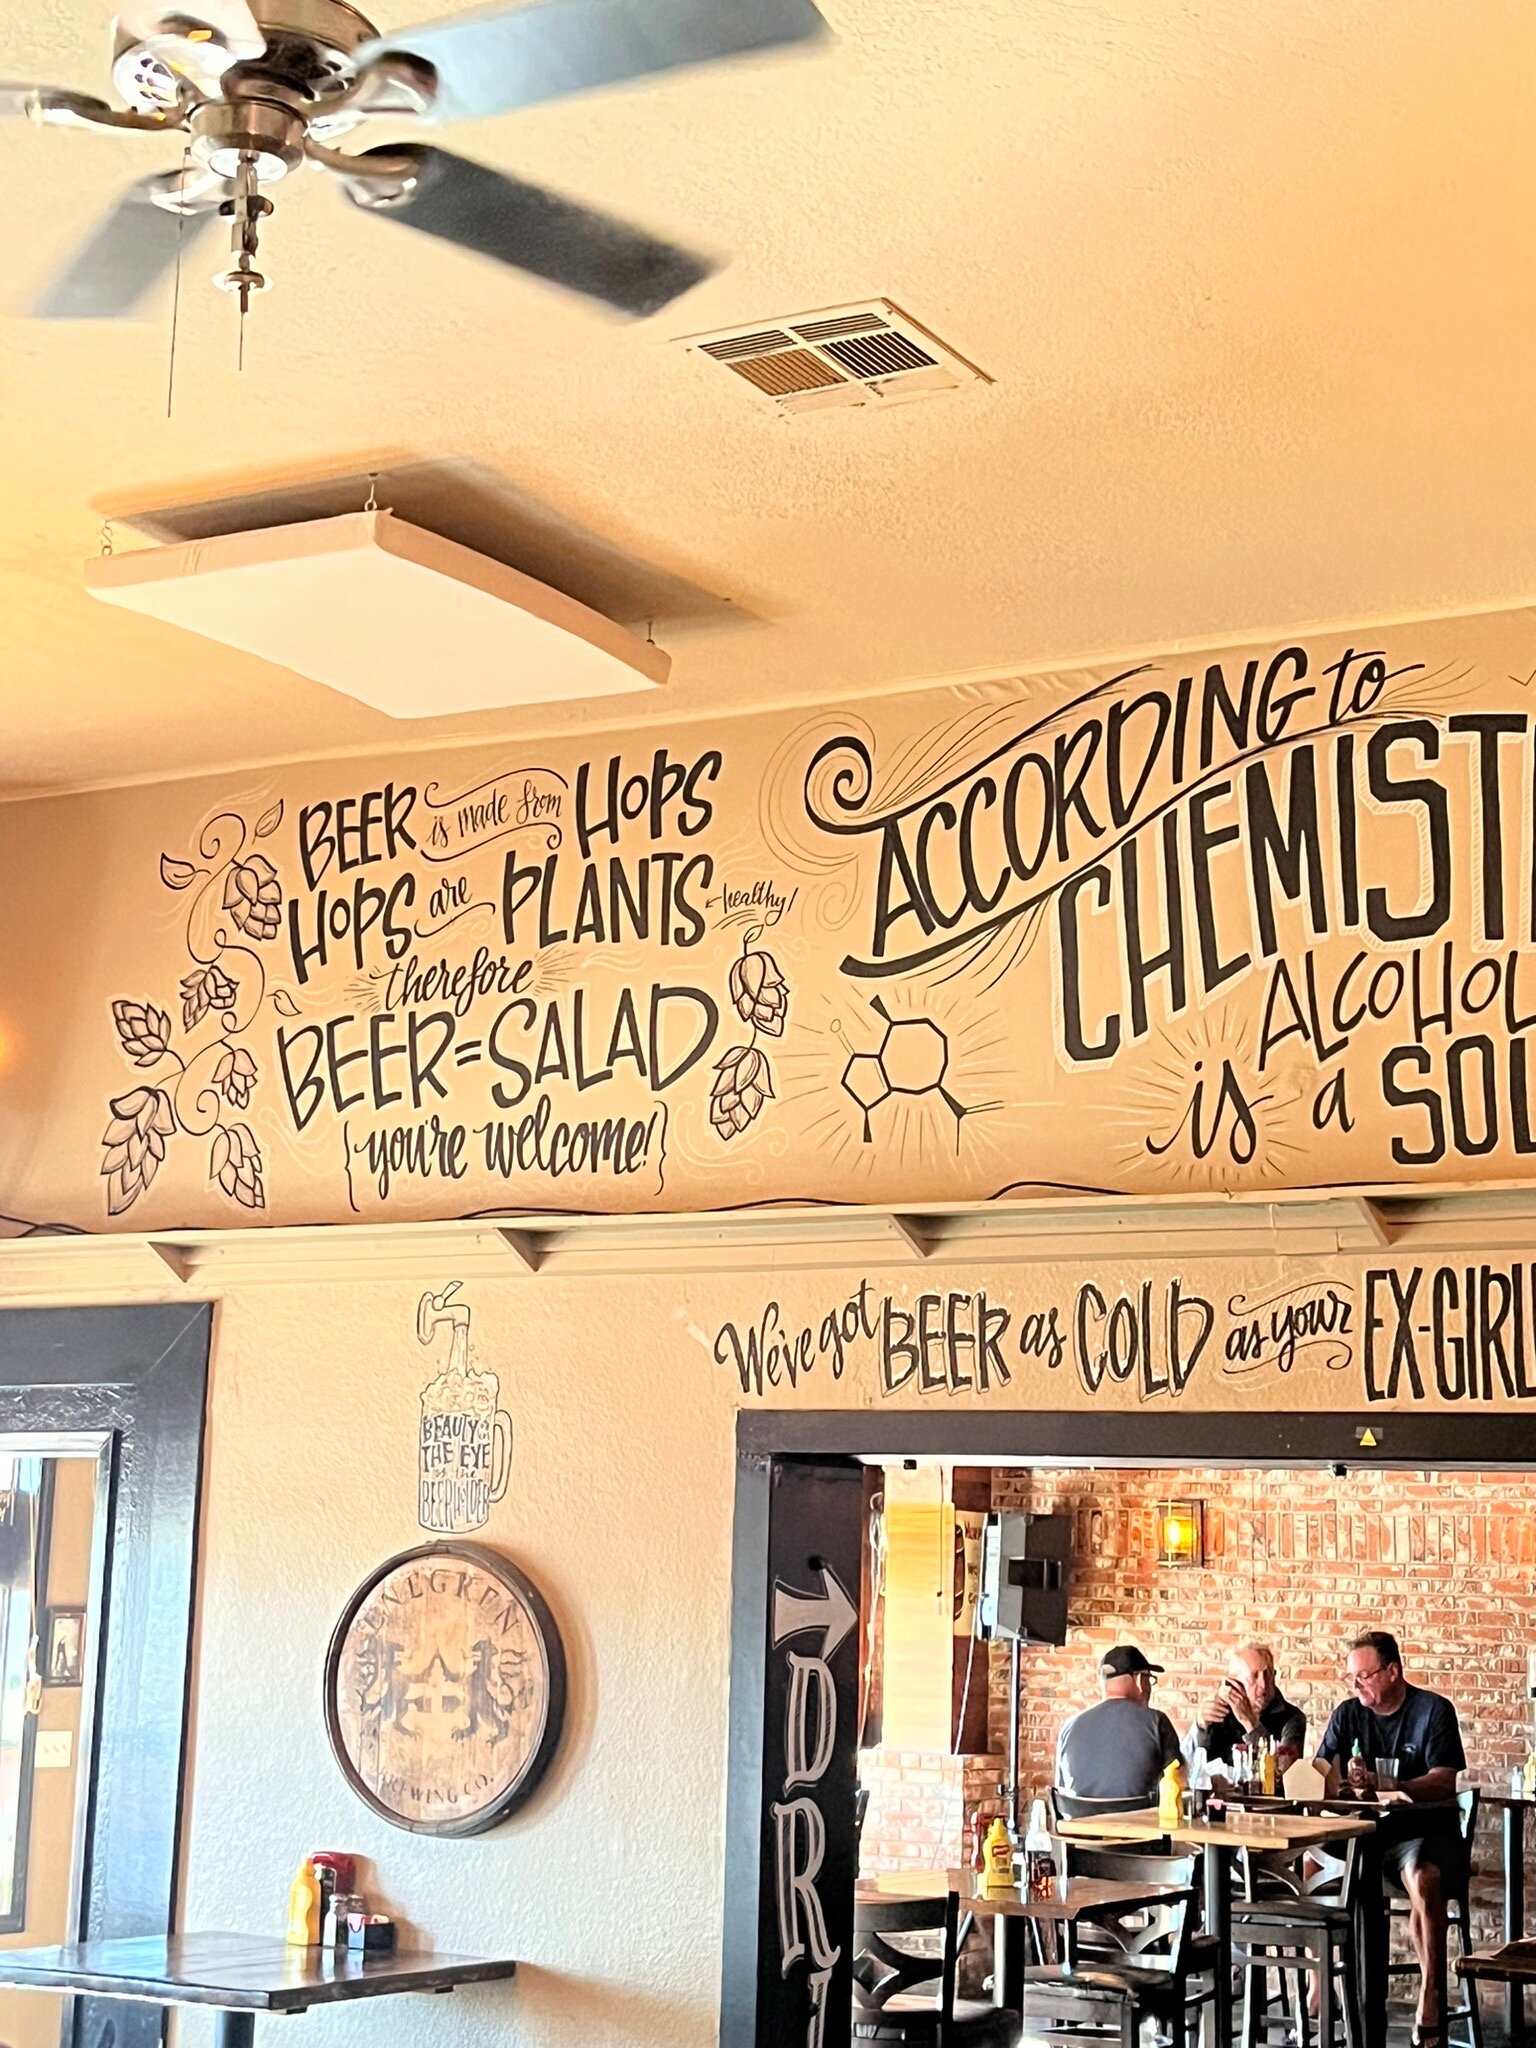 BEER is made from HOPS
HOPS are PLANTS ←healthy!
therefore
BEER=SALAD
{you're welcome!}
ACCORDING to
CHEMIST
ALCOHOL
is a SOL
We've got BEER as COLD as your EX-GIRL
BEAUTY is in
THE EYE
of the
BEERHOLDER
BREWING CO.
DRI